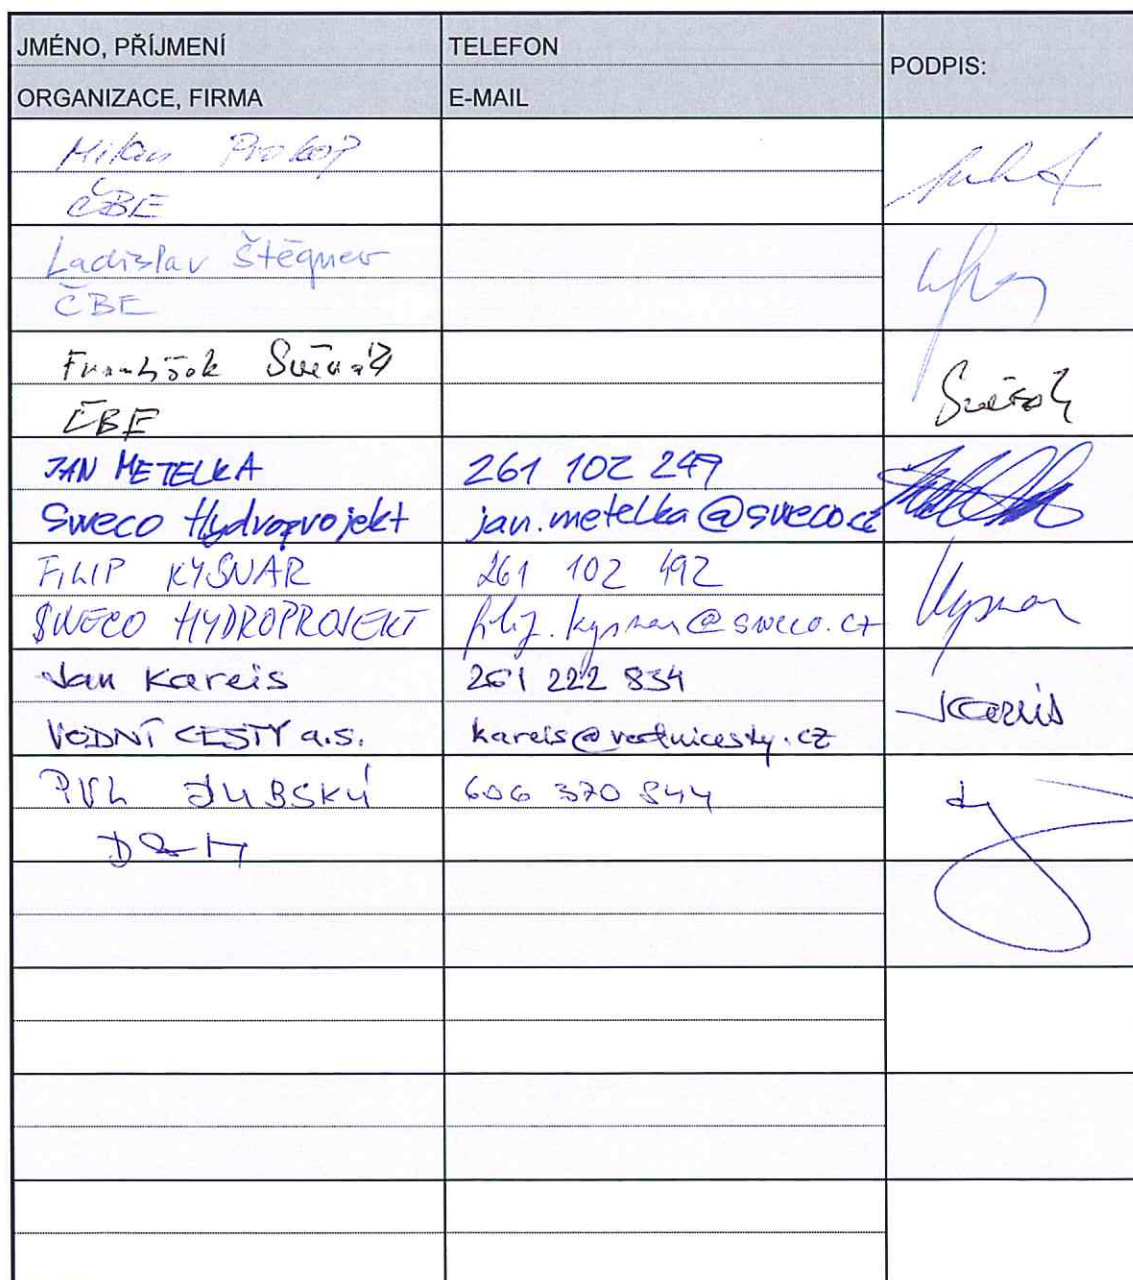 JMÉNO, PŘÍJMENÍ TELEFON
PODPIS:
ORGANIZACE, FIRMA E-MAIL
Milan Prokop
ČBE
Ladislav Štěgner
ČBE
František
ČBE
JAN METELKA 261 102 249
Sweco Hydroprojekt jan.metelka@sweco.cz
FILIP KYSNAR 261 102 492
SWECO HYDROPROJEKT filip.kysnar@sweco.cz
Jan Kareis 261 222 834
Kareis
VODNÍ CESTY a.s. kareis@vodnicesty.cz
PVL 606 370 844